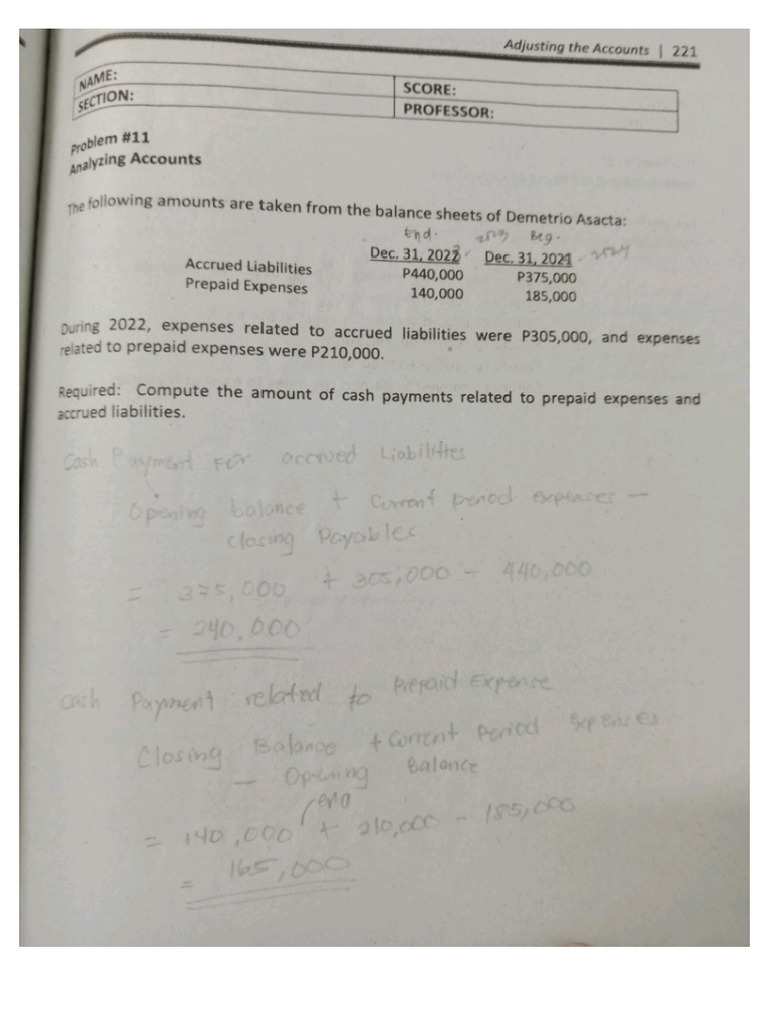 Adjusting the Accounts | 221
NAME:
SCORE:
SECTION:
PROFESSOR:
Problem #11
Analyzing Accounts
The following amounts are taken from the balance sheets of Demetrio Asacta:
End. Beg.
Dec. 31, 2022 Dec. 31, 2021
Accrued Liabilities P440,000 P375,000
Prepaid Expenses 140,000 185,000
During 2022, expenses related to accrued liabilities were P305,000, and expenses
related to prepaid expenses were P210,000.
Required: Compute the amount of cash payments related to prepaid expenses and
accrued liabilities.
Cash Payment For accrued Liabilities
Opening balance + Current period expenses -
closing Payables
= 375,000 + 305,000 - 440,000
= 240,000
Cash Payment related to Prepaid Expense
Closing Balance + Current Period Expenses
- Opening Balance
= 140,000 + 210,000 - 185,000
= 165,000